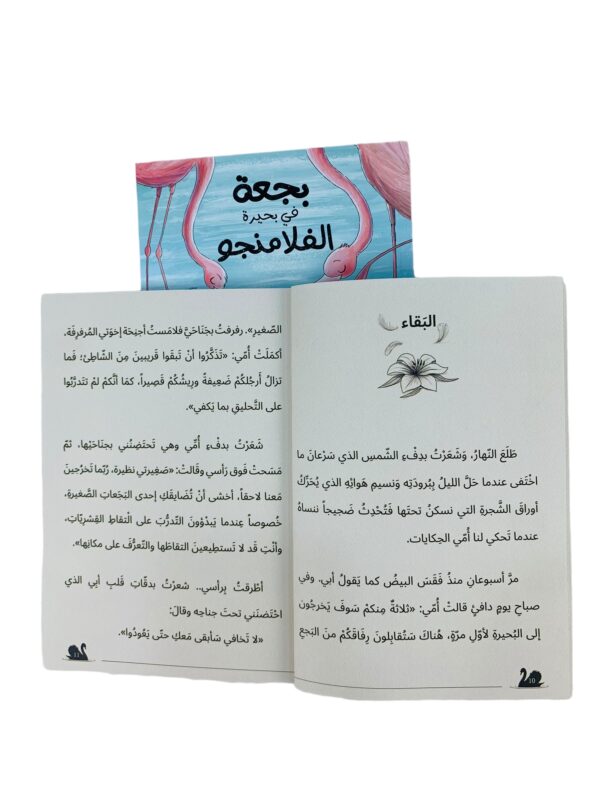 بجعة
في بحيرة
الفلامنجو
البَقاء
طَلَعَ النّهارُ، وَشَعَرْتُ بِدِفْءِ الشّمسِ الذي سَرْعانَ ما
اخْتَفى عندما حَلَّ الليلُ بِبُرودَتِه وَنَسيمِ هَوائِهِ الذي يُحَرِّكُ
أوراقَ الشَّجرةِ التي نسكنُ تحتَها فَتُحْدِثُ ضَجيجاً ننساهُ
عندما تَحكي لنا أُمّي الحِكايات.
مرَّ أسبوعانِ منذُ فقَسَ البيضُ كما يَقولُ أبي. وفي
صباحِ يومٍ دافئٍ قالتْ أُمّي: «ثلاثةٌ مِنكمْ سَوفَ يَخرجُون
إلى البُحيرةِ لأوّلِ مرّةٍ، هُناكَ سَتُقابِلونَ رِفاقَكُمْ منَ البَجعِ
10
الصّغيرِ». رفرفتُ بجَنَاحَيَّ فلامَستُ أجنِحَة إخوَتي المُرفرِفَة.
أكمَلَتْ أُمّي: «تَذَكَّرُوا أنْ تَبقَوا قَريبينَ مِنَ الشّاطِئِ؛ فما
تزالُ أرجُلُكُمْ ضَعِيفةً وريشُكُمْ قَصيراً، كمَا أنّكمْ لمْ تتَدرَّبُوا
على التَّحليقِ بما يَكفي».
شَعَرْتُ بدفْءِ أُمِّي وهي تَحتَضِنُني بجناحَيْها، ثمّ
مَسَحتْ فَوق رَأسي وقَالتْ: «صَغيرتي نظيرة، رُبّما تَخرُجينَ
مَعنا لاحقاً، أخشى أنْ تُضَايقَكِ إحدى البَجَعاتِ الصَّغيرةِ،
خُصوصاً عِندما يَبدَؤونَ التّدرُّبَ على الْتِقاطِ القِشريّاتِ،
وأنْتِ قَد لا تَستطيعينَ التقاطَها والتّعرُّفَ على مكانِها».
أطْرقتُ بِرأسي.. شعرْتُ بدقّاتِ قَلبِ أبِي الذي
احْتَضنَني تحتَ جناحِه وقالَ:
«لا تَخافي سَأبقى مَعكِ حتّى يَعُودُوا».
11